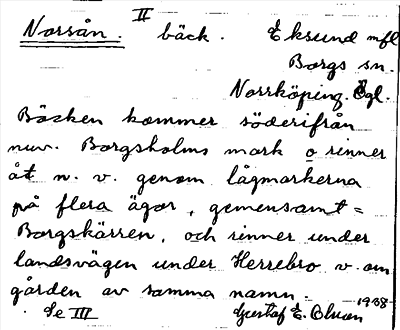 Norsån. II bäck. Eksund mfl
Borgs sn.
Norrköping. Ögl.
Bäcken kommer söderifrån
nuv. Borgsholms mark o rinner
åt n. v. genom lågmarkerna
på flera ägor, gemensamt =
Borgskärren, och rinner under
landsvägen under Herrebro v. om
gården av samma namn. 1938
Se III Gustaf E. Olsson